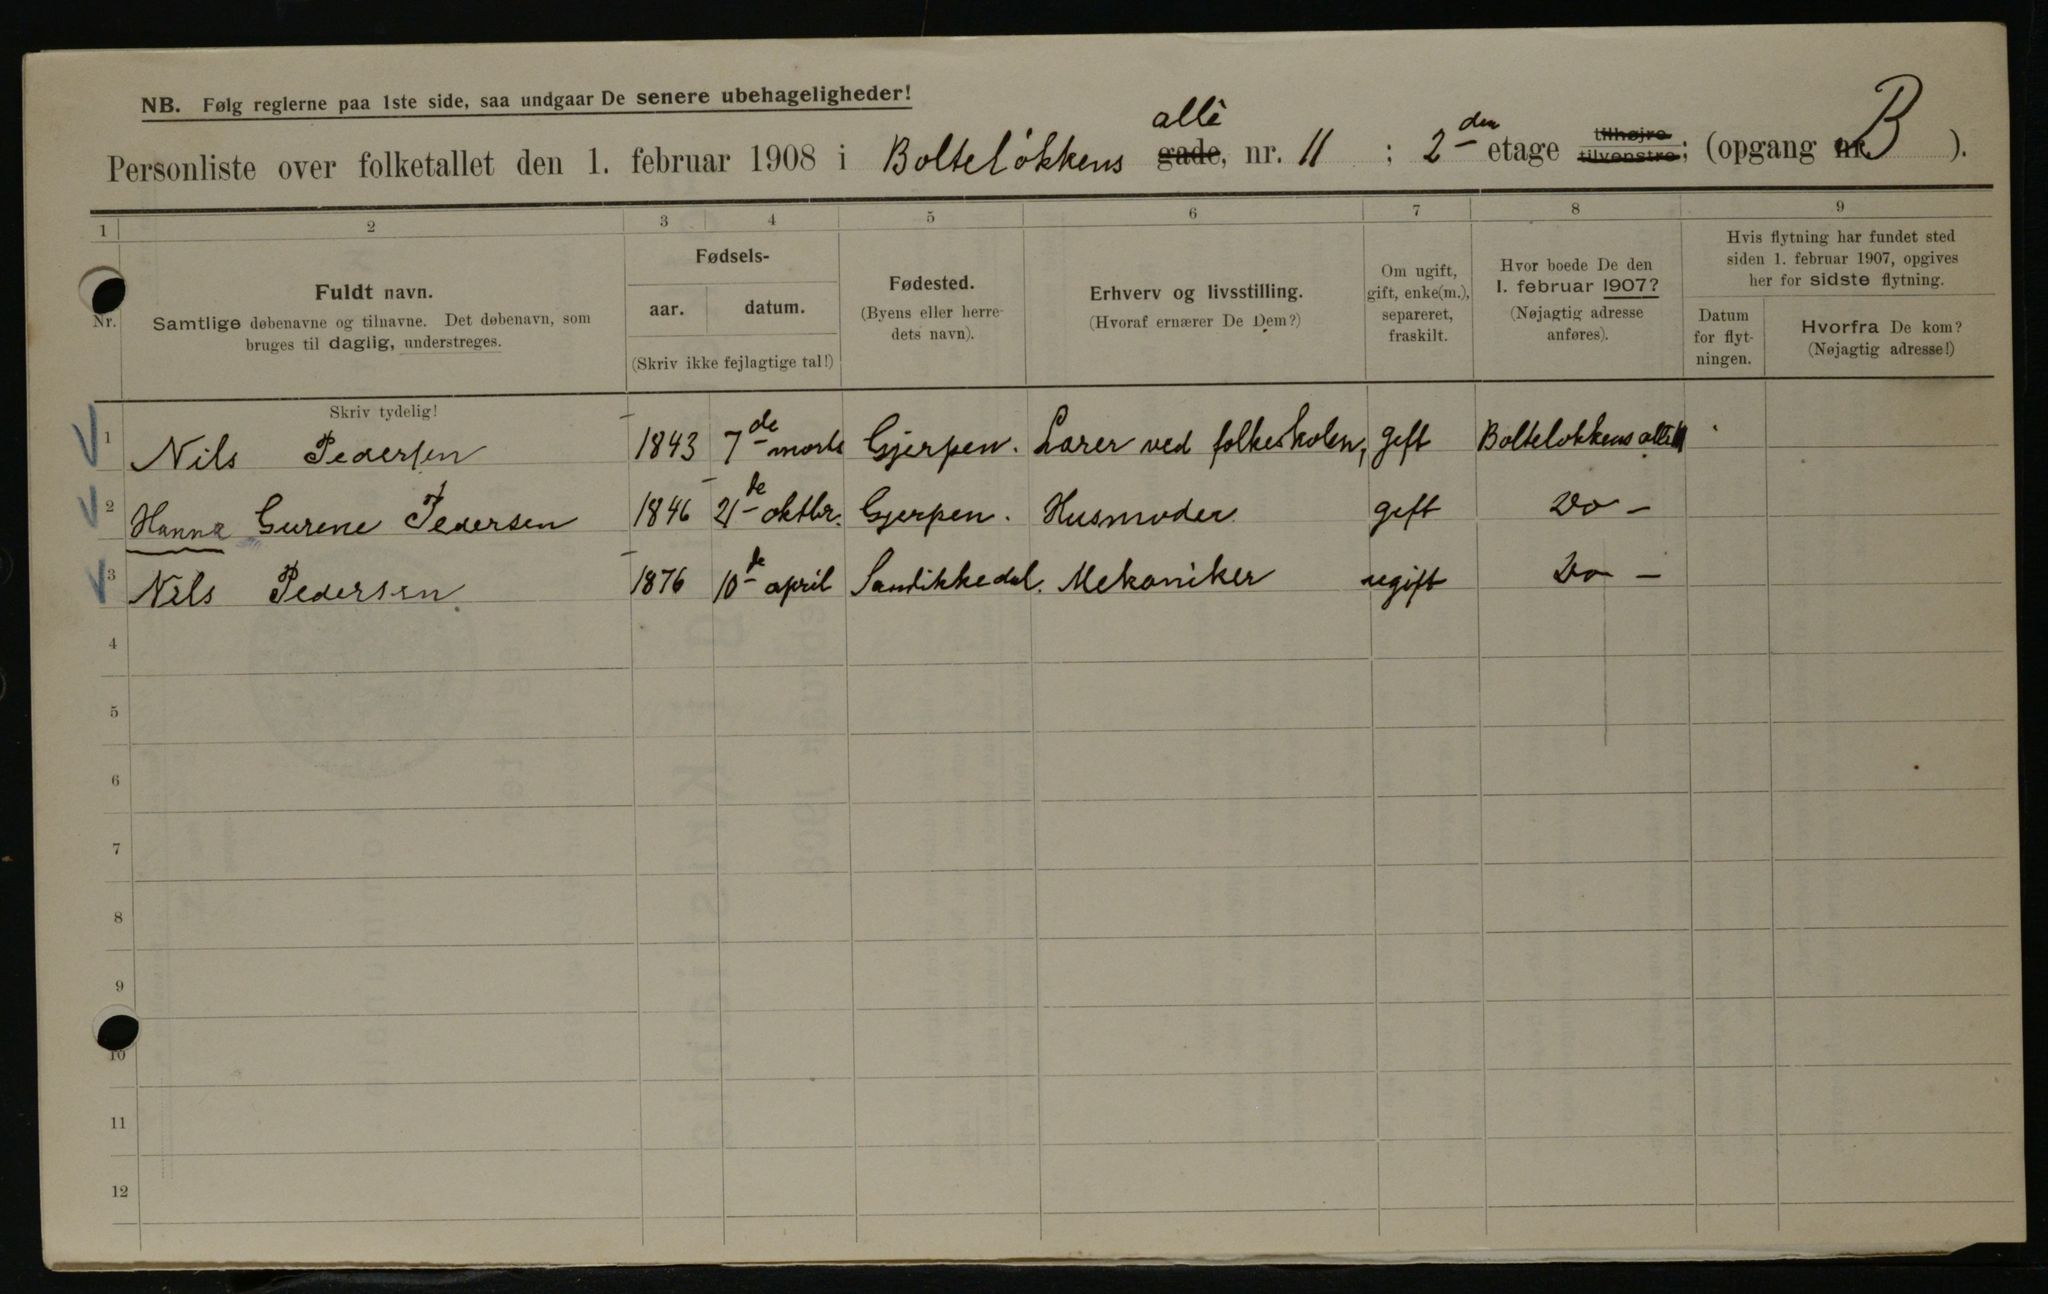 NB. Følg reglerne paa 1ste side, saa undgaar De senere ubehageligheder!
Personliste over folketallet den 1. februar 1908 i Bolteløkkens gade, allè nr. 11 ; 2den etage tilhøjre tilvenstre; (opgang nr. B ).
1 2 3 4 5 6 7 8 9
Nr.
Fuldt navn.
Samtlige døbenavne og tilnavne. Det døbenavn, som
bruges til daglig, understreges.
Fødsels-
aar. datum.
(Skriv ikke fejlagtige tal!)
Fødested.
(Byens eller herre-
dets navn).
Erhverv og livsstilling.
(Hvoraf ernærer De Dem?)
Om ugift,
gift, enke(m.),
separeret,
fraskilt.
Hvor boede De den
1. februar 1907?
(Nøjagtig adresse
anføres).
Hvis flytning har fundet sted
siden 1. februar 1907, opgives
her for sidste flytning.
Datum
for flyt-
ningen.
Hvorfra De kom?
(Nøjagtig adresse!)
Skriv tydelig!
1 Nils Pedersen 1843 7de marts Gjerpen. Lærer ved folkeskolen, gift Bolteløkkens allè 11
2 Hanna Gurene Pedersen 1846 21de oktbr. Gjerpen. Husmoder gift Do -
3 Nils Pedersen 1876 10de april Sandikkedal. Mekaniker ugift Do -
4
5
6
7
8
9
10
11
12